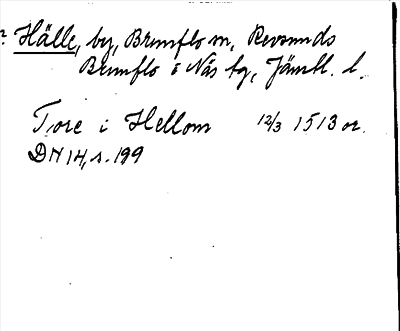 ? Hälle, by, Brunflo sn, Revsunds
Brunflo o Näs tg, Jämtl. l.
Tore i Hellom 12/3 1513 or.
DN 14, s. 199